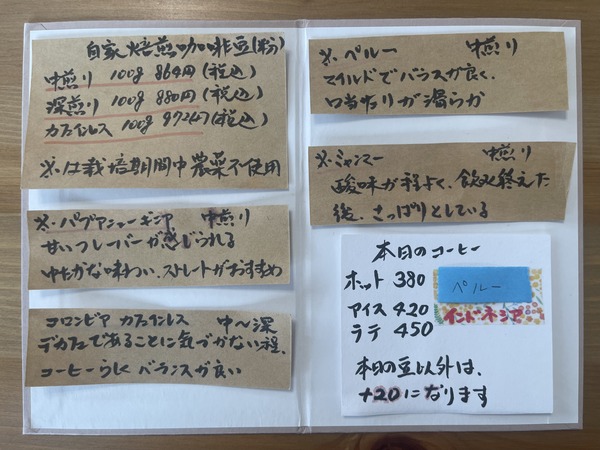 自家焙煎珈琲豆(粉)
中煎り 100g 864円(税込)
深煎り 100g 880円(税込)
カフェインレス 100g 972円(税込)
※は栽培期間中農薬不使用
※パプアニューギニア 中煎り
甘いフレーバーが感じられる
ゆたかな味わい、ストレートがおすすめ
コロンビア カフェインレス 中〜深
デカフェであることに気づかない程、
コーヒーらしくバランスが良い
※ペルー 中煎り
マイルドでバランスが良く、
口当たりが滑らか
※ミャンマー 中煎り
酸味が程よく、飲み終えた
後、さっぱりとしている
本日のコーヒー
ホット 380
ペルー
アイス 420
インドネシア
ラテ 450
本日の豆以外は、
+20になります